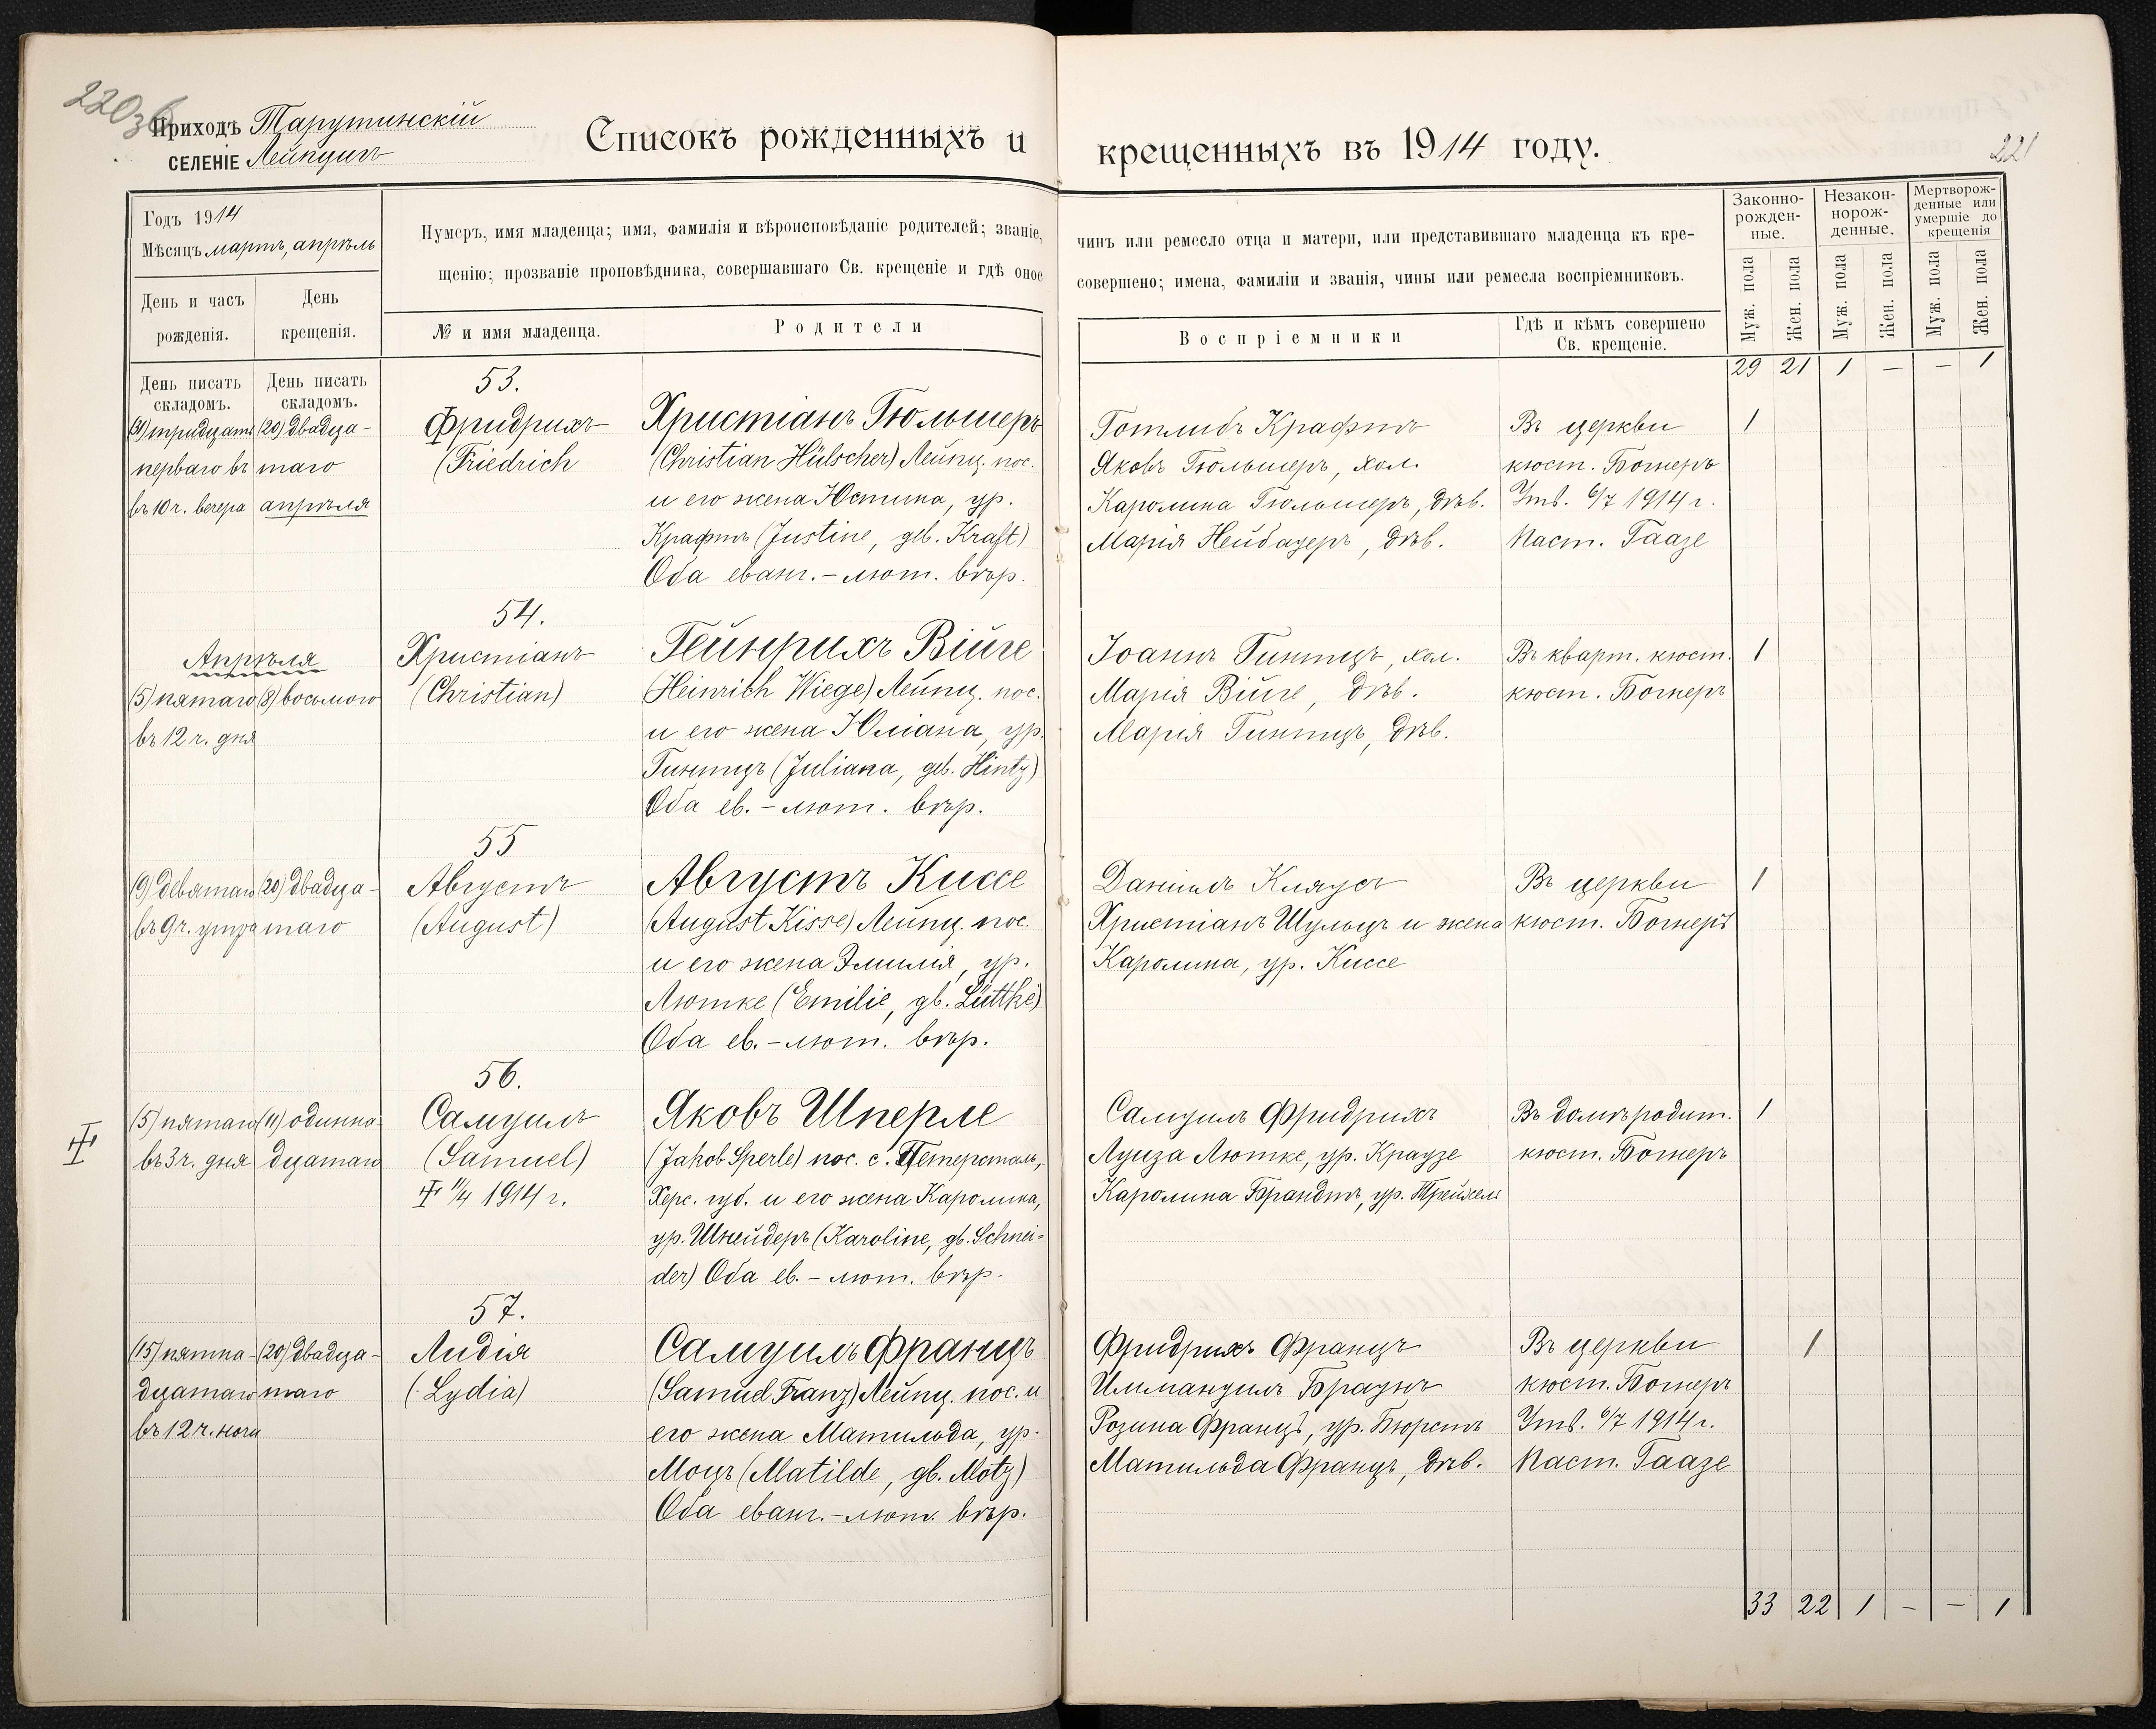 220 зб
Приходъ Тарутинскій
СЕЛЕНІЕ Лейпцигъ
Списокъ рожденныхъ и
крещенныхъ въ 1914 году.
221
Годъ 1914
Мѣсяцъ мартъ, апрѣль
День и часъ
рожденія.
День
крещенія.
Нумеръ, имя младенца; имя, фамилія и вѣроисповѣданіе родителей; званіе,
щенію; прозваніе проповѣдника, совершавшаго Св. крещеніе и гдѣ оное
№ и имя младенца.
Родители
чинъ или ремесло отца и матери, или представившаго младенца къ кре-
совершено; имена, фамиліи и званія, чины или ремесла воспріемниковъ.
Воспріемники
Гдѣ и кѣмъ совершено
Св. крещеніе.
Законно-
рожден-
ные.
Незакон-
норож-
денные.
Мертворож-
денные или
умершіе до
крещенія
Муж. пола
Жен. пола
Муж. пола
Жен. пола
Муж. пола
Жен. пола
29 21 1 — — 1
День писать
складомъ.
День писать
складомъ.
(31) тридцать
перваго въ
въ 10 ч. вечера
(20) двадца-
таго
апрѣля
53.
Фридрихъ
(Friedrich
Христіанъ Гюльшеръ
(Christian Hülscher) Лейпц. пос.
и его жена Юстина, ур.
Крафтъ (Justine, geb. Kraft)
Оба еванг.-лют. вѣр.
Готлибъ Крафтъ
Яковъ Гюльшеръ, хол.
Каролина Гюльшеръ, дѣв.
Марія Нейбауеръ, дѣв.
Въ церкви
кюст. Богнеръ
Утв. 6/7 1914 г.
Паст. Гаазе
1
Апрѣля
(5) пятаго
въ 12 ч. дня
(8) восьмого
54.
Христіанъ
(Christian)
Гейнрихъ Вiйге
(Heinrich Wiege) Лейпц. пос.
и его жена Юліана, ур.
Гинтцъ (Juliana, geb. Hintz)
Оба ев.-лют. вѣр.
Іоаннъ Гинтцъ, хол.
Марія Вiйге, дѣв.
Марія Гинтцъ, дѣв.
Въ кварт. кюст.
кюст. Богнеръ
1
(9) девятаго
въ 9 ч. утра
(20) двадца-
таго
55
Августъ
(August)
Августъ Киссе
(August Kisse) Лейпц. пос.
и его жена Эмилія, ур.
Лютке (Emilie, gb. Lüttke)
Оба ев.-лют. вѣр.
Даніилъ Клаусъ
Христіанъ Шульцъ и жена
Каролина, ур. Киссе
Въ церкви
кюст. Богнеръ
1
(5) пятаго
въ 3 ч. дня
(11) одинна-
дцатаго
56.
Самуилъ
(Samuel)
11/4 1914 г.
Яковъ Шперле
(Jakob Sperle) пос. с. Петерсталь,
Херс. губ. и его жена Каролина,
ур. Шнейдеръ (Karoline, gb. Schnei-
der) Оба ев.-лют. вѣр.
Самуилъ Фридрихъ
Луиза Лютке, ур. Краузе
Каролина Брандтъ, ур. Трейхель
Въ домѣ родит.
кюст. Богнеръ
1
(15) пятна-
дцатаго
въ 12 ч. ночи
(20) двадца-
таго
57.
Лидія
(Lydia)
Самуилъ Францъ
(Samuel Franz) Лейпц. пос. и
его жена Матильда, ур.
Моцъ (Matilde, gb. Motz)
Оба еванг.-лют. вѣр.
Фридрихъ Францъ
Иммануилъ Браунъ
Розина Францъ, ур. Бюрстъ
Матильда Францъ, дѣв.
Въ церкви
кюст. Богнеръ
Утв. 6/7 1914 г.
Паст. Гаазе
1
33 22 1 — — 1